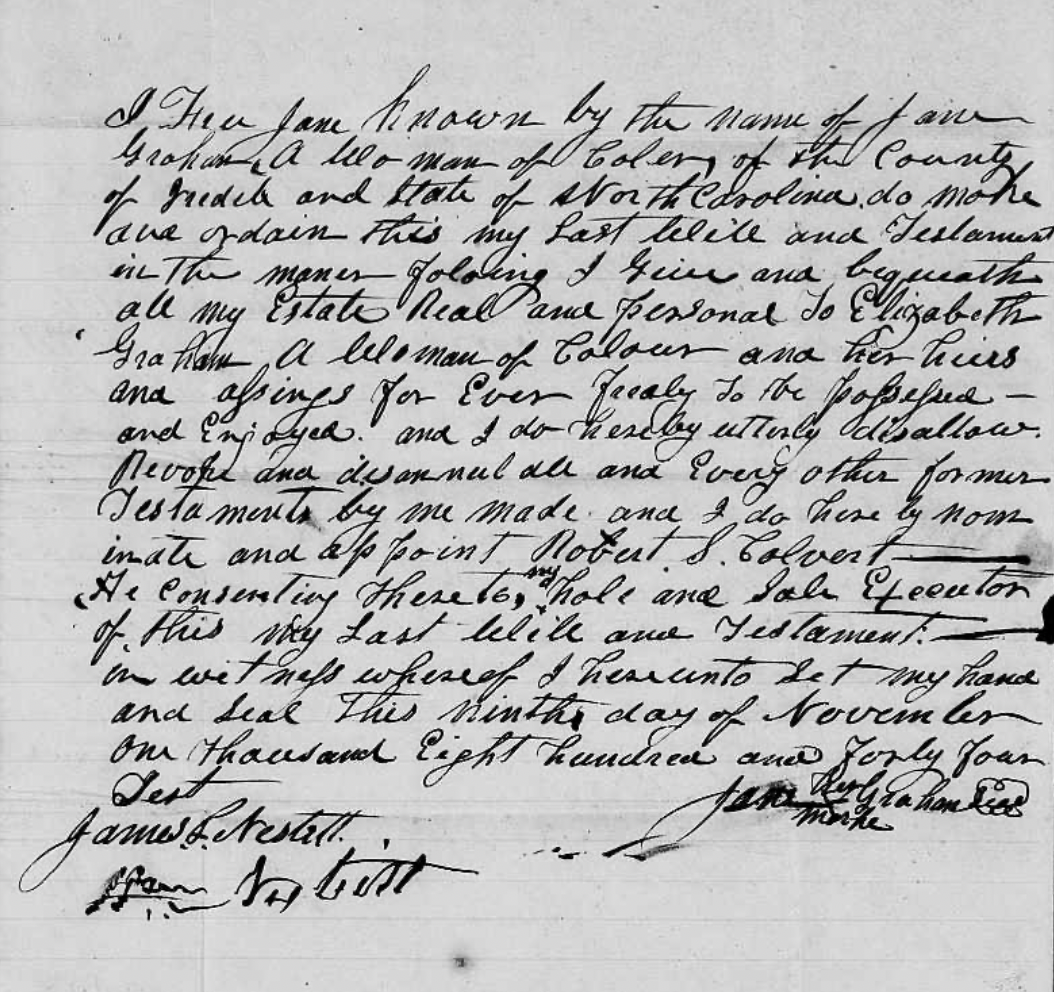 I Free Jane known by the name of Jane
Graham, A Woman of Coler, of the County
of Iredell and State of North Carolina, do make
and ordain this my Last Will and Testament
in the maner foloing I Give and bequeath
all my Estate Real and personal To Elizabeth
Graham A Woman of Colour and her hiers
and assings for Ever freely To be possessed —
and Enjoyed. and I do hereby utterly disallow.
Revoke and disannul all and Every other former
Testaments by me made and I do here by nom
inate and appoint Robert S. Colvert
He Consenting thereto, my hole and Sole Executor
of this my Last Will and Testament.
in witness whereof I hereunto Set my hand
and Seal This ninth day of November
One thousand Eight hundred and forty four
Test
Jane her Graham Seal
marke
James S. Nesbitt.
Nesbitt